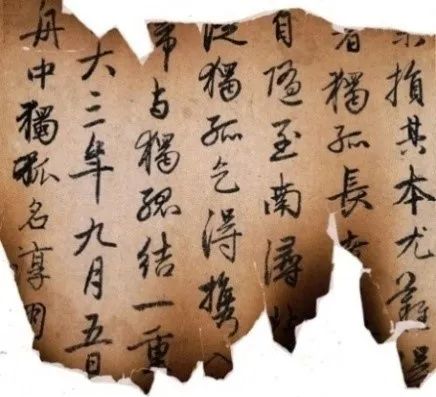 損其本尤難得
者獨孤長
自隨至南潯
從獨孤乞得攜入
歸與獨孤結一重
大三年九月五日
舟中獨孤名淳朋